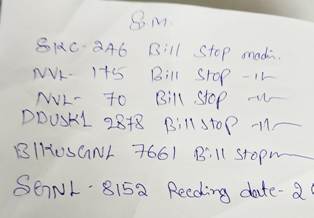 S.M.
SKC-246 Bill Stop madi.
NVL- 175 Bill Stop -11-
NVL- 70 Bill Stop -11-
DDUSKL 2878 Bill Stop -11-
7661 Bill Stop
SGNL - 8152 Reeding date - 2